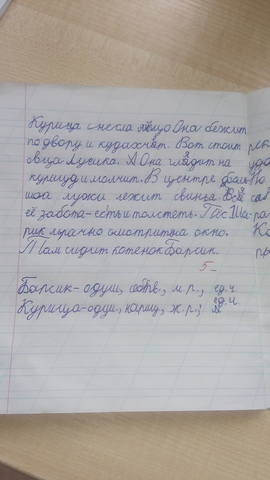 Курица снесла яйцо Она бежит
по двору и кудахчет. Вот стоит
овца Лусика. А Она глядит на
курицу и молчит. В центре боль
шой лужи лежит свинья Вся
её забота - есть и толстеть. Пёс Ша-
рик мрачно смотрит на окно.
Там сидит котёнок Барсик.
5-
Барсик - одуш, собств., м.р., ед.ч
Курица - одуш, нариц, ж.р., ед.ч.